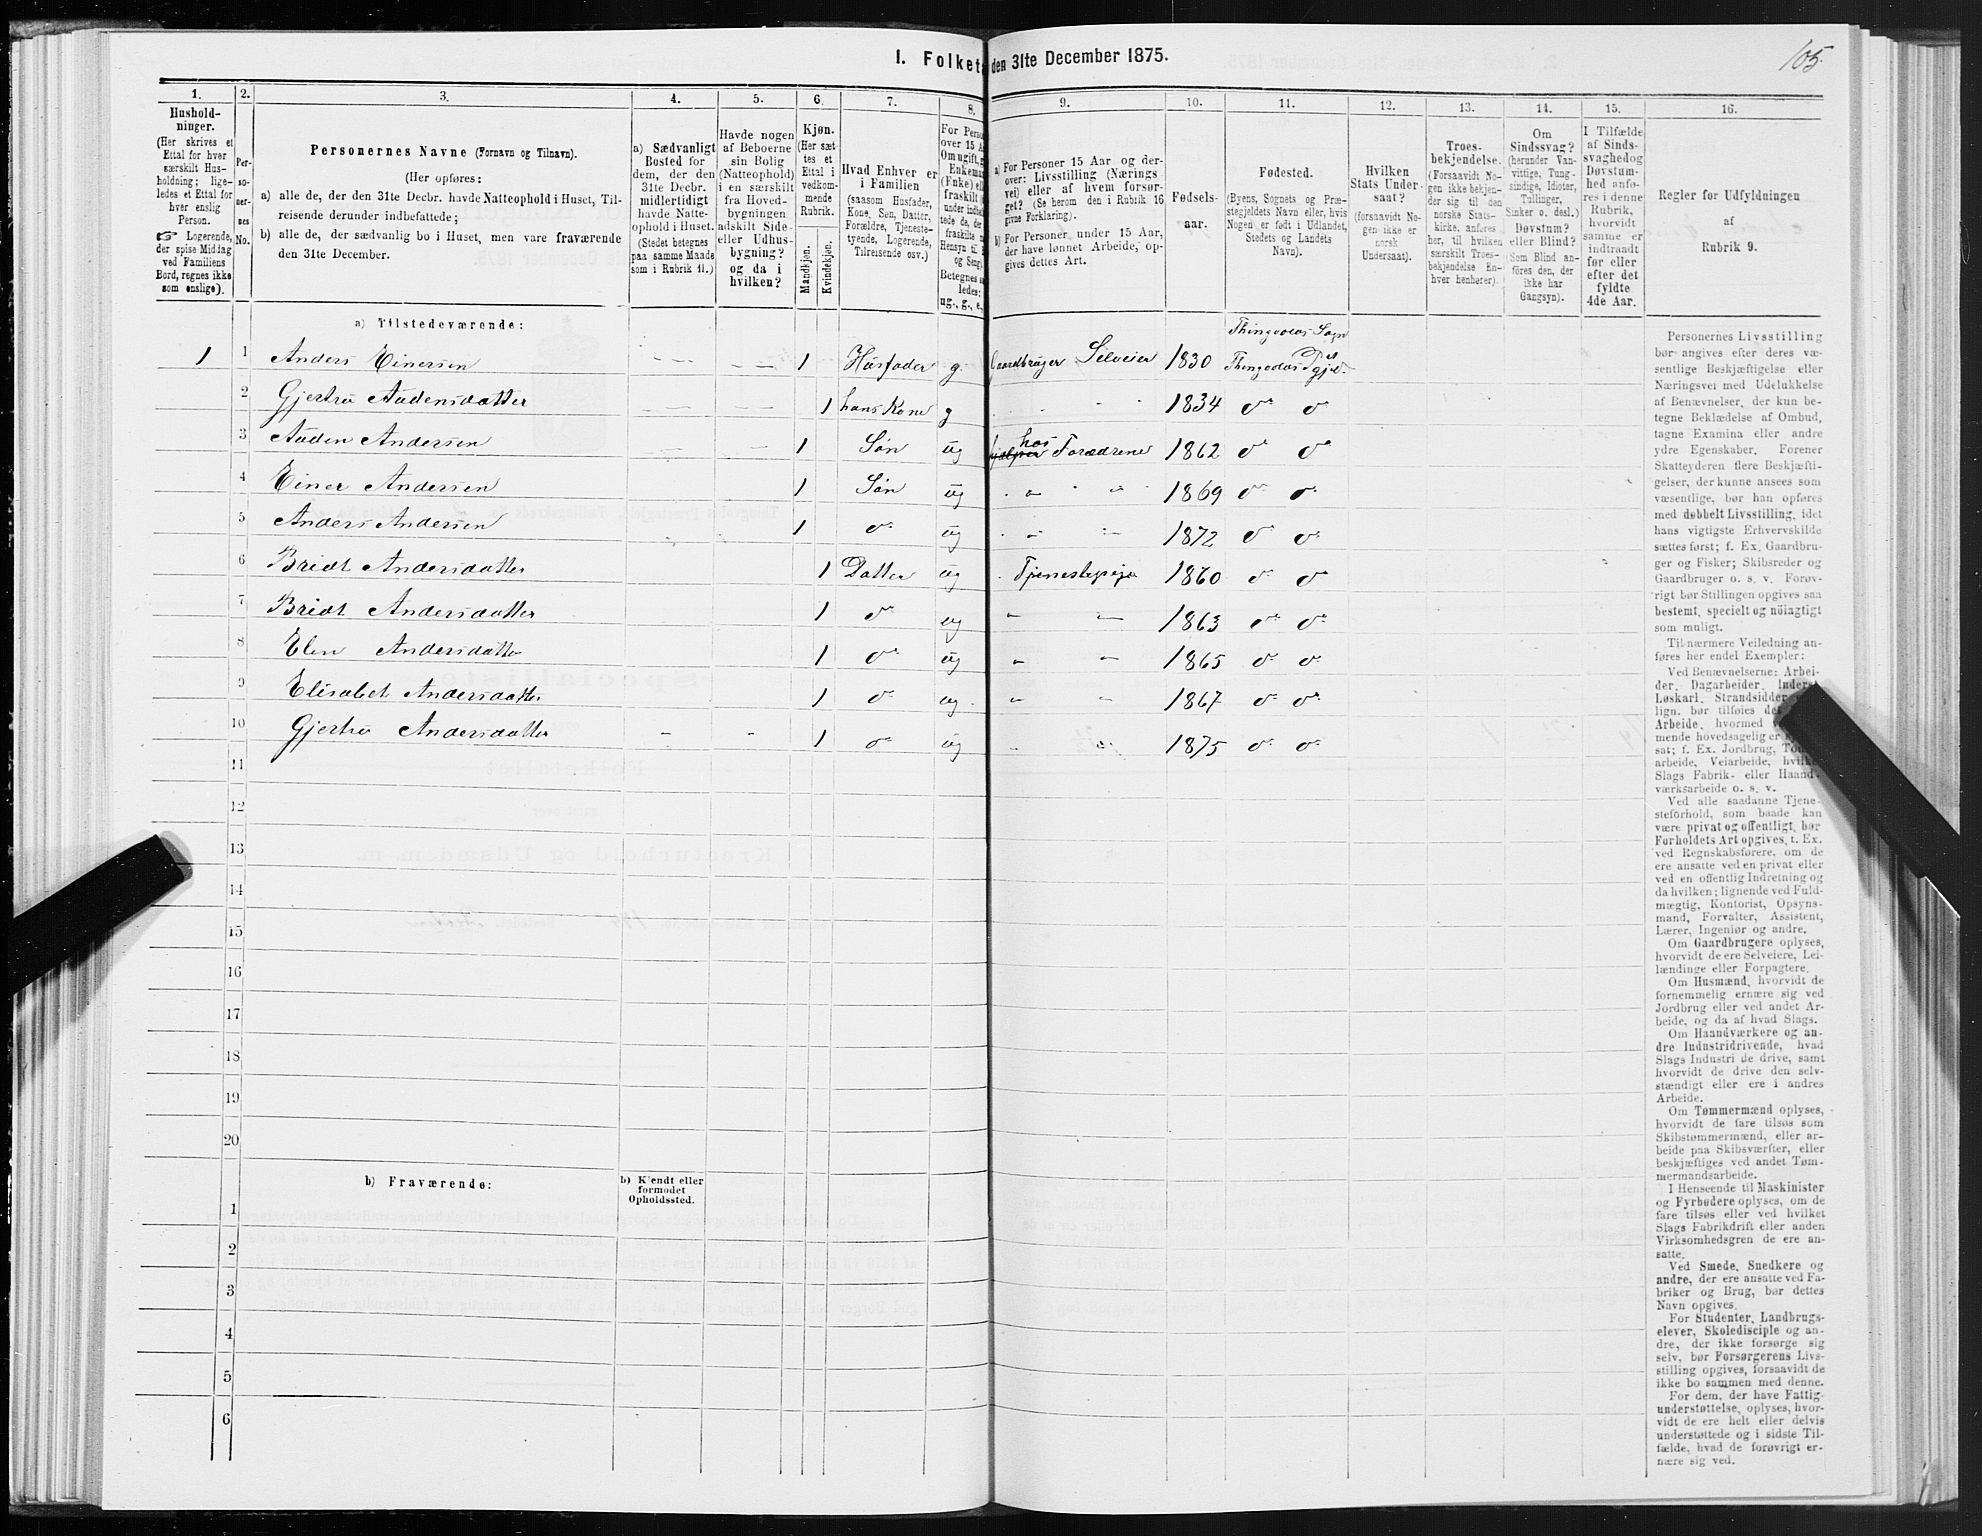 105
I. Folket den 31te December 1875.
1. 2. 3. 4. 5. 6. 7. 8. 9. 10. 11. 12. 13. 14. 15. 16.
Hushold-
ninger.
(Her skrives et
Ettal for hver
særskilt Hus-
holdning; lige-
ledes et Ettal for
hver enslig
Person.
☞ Logerende,
der spise Middag
ved Familiens
Bord, regnes ikke
som enslige).
Per-
so-
ner-
nes
No.
Personernes Navne (Fornavn og Tilnavn).
(Her opføres:
a) alle de, der den 31te Decbr. havde Natteophold i Huset, Til-
reisende derunder indbefattede;
b) alle de, der sædvanlig bo i Huset, men vare fraværende
den 31te December.
a) Sædvanligt
Bosted for
dem, der den
31te Decbr.
midlertidigt
havde Natte-
ophold i Huset.
(Stedet betegnes
paa samme Maade
som i Rubrik 11.)
Havde nogen
af Beboerne
sin Bolig
(Natteophold)
i en særskilt
fra Hoved-
bygningen
adskilt Side-
eller Udhus-
bygning?
og da i
hvilken?
Kjøn.
(Her sæt-
tes et
Ettal i
vedkom-
mende
Rubrik.
Mandkjøn.
Kvindekjøn.
Hvad Enhver er
i Familien
(saasom Husfader,
Kone, Søn, Datter,
Forældre, Tjeneste-
tyende, Logerende,
Tilreisende osv.)
For Perso
over 15 A
Om ugift, g
Enkema
(Fnke) el
fraskilt
under indb
tede de, de
fraskilte
Hensyn til
og Seng
Betegnes s
ledes:
ug., g., e.,
a) For Personer 15 Aar og der-
over: Livsstilling (Nærings
vei) eller af hvem forsør-
get? (Se herom den i Rubrik 16
givne Forklaring).
b) For Personer under 15 Aar,
der have lønnet Arbeide, op-
gives dettes Art.
Fødsels-
aar.
Fødested.
(Byens, Sognets og Præ-
stegjeldets Navn eller, hvis
Nogen er født i Udlandet,
Stedets og Landets
Navn).
Hvilken
Stats Under-
saat?
(forsaavidt No-
gen ikke er
norsk
Undersaat).
Troes-
bekjendelse.
(Forsaavidt No-
gen ikke bekjen-
der sig til den
norske Stats-
kirke, anføres
her, til hvilken
særskilt Troes-
bekjendelse En-
hver henhører).
Om
Sindssvag?
(herunder Van-
vittige, Tung-
sindige, Idioter,
Tullinger,
Sinker o. desl.)
Døvstum?
eller Blind?
(Som Blind an-
føres den, der
ikke har
Gangsyn).
I Tilfælde
af Sinds-
svaghed og
Døvstum-
hed anfø-
res i denne
Rubrik,
hvorvidt
samme er
indtraadt
før eller
efter det
fyldte
4de Aar.
Regler for Udfyldningen
af
Rubrik 9.
a) Tilstedeværende:
Thingvolds Sogn
1 1 Anders Einersen 1 Husfader g. Gaardbruger Selveier 1830 Thingvolds Pstgjel.
2 Gjertru Audensdatter 1 hans Kone g 1834 do do
3 Auden Andersen 1 Søn ug hjelper hos Forældrene 1862 do do
4 Einer Andersen 1 Søn ug " " 1869 do do
5 Anders Andersen 1 do ug " " 1872 do do
6 Bridt Andersdatter 1 Datter ug Tjenestepige 1860 do do
7 Bridt Andersdatter 1 do ug " " 1863 do do
8 Elen Andersdatter 1 do ug " " 1865 do do
9 Elisabet Andersdatter 1 do ug. " " 1867 do do
10 Gjertru Andersdatter 1 do ug " " 1875 do do
11
12
13
14
15
16
17
18
19
20
b) Fraværende:
b) Kjendt eller
formodet
Opholdssted.
1
2
3
4
5
6
Personernes Livsstilling
bør angives efter deres væ-
sentlige Beskjæftigelse eller
Næringsvei med Udelukkelse
af Benævnelser, der kun be-
tegne Beklædelse af Ombud,
tagne Examina eller andre
ydre Egenskaber. Forener
Skatteyderen flere Beskjæfti-
gelser, der kunne ansees som
væsentlige, bør han opføres
med dobbelt Livsstilling, idet
hans vigtigste Erhvervskilde
sættes først; f. Ex. Gaardbru-
ger og Fisker; Skibsreder og
Gaardbruger o. s. v. Forøv-
rigt bør Stillingen opgives saa
bestemt, specielt og nöiagtigt
som muligt.
Til nærmere Veiledning an-
føres her endel Exempler:
Ved Benævnelserne: Arbei-
der, Dagarbeider, Inders
Løskarl, Strandsidder
lign. bør tilføies det
Arbeide, hvormed
mende hovedsagelig er
sat; f. Ex. Jordbrug, Tom
arbeide, Veiarbeide, hvilke
Slags Fabrik- eller Haand-
værksarbeide o. s. v.
Ved alle saadanne Tjene-
steforhold, som baade kan
være privat og offentligt, bør
Forholdets Art opgives, t. Ex.
ved Regnskabsførere, om de
ere ansatte ved en privat eller
ved en offentlig Indretning og
da hvilken; lignende ved Fuld-
mægtig, Kontorist, Opsyns-
mand, Forvalter, Assistent,
Lærer, Ingeniør og andre.
Om Gaardbrugere oplyses,
hvorvidt de ere Selveiere, Lei-
lændinge eller Forpagtere.
Om Husmænd, hvorvidt de
fornemmelig ernære sig ved
Jordbrug eller ved andet Ar-
beide, og da af hvad Slags.
Om Haandværkere og an-
dre Industridrivende, hvad
Slags Industri de drive, samt
hvorvidt de drive den selv-
stændigt eller ere i andres
Arbeide.
Om Tømmermænd oplyses,
hvorvidt de fare tilsøs som
Skibstømmermænd, eller ar-
beide paa Skibsværfter, eller
beskjæftiges ved andet Tøm-
mermandsarbeide.
I Henseende til Maskinister
og Fyrbødere oplyses, om de
fare tilsøs eller ved hvilket
Slags Fabrikdrift eller anden
Virksomhedsgren de ere an-
satte.
Ved Smede, Snedkere og
andre, der ere ansatte ved Fa-
briker og Brug, bør dettes
Navn opgives.
For Studenter, Landbrugs-
elever, Skoledisciple og an-
dre, der ikke forsørge sig
selv, bør Forsørgerens Livs-
stilling opgives, forsaavidt de
ikke bo sammen med denne.
For dem, der have Fattig-
understøttelse, oplyses, hvor-
vidt de ere helt eller delvis
understøttede og i sidste Til-
fælde, hvad de forøvrigt er-
nære sig ved.